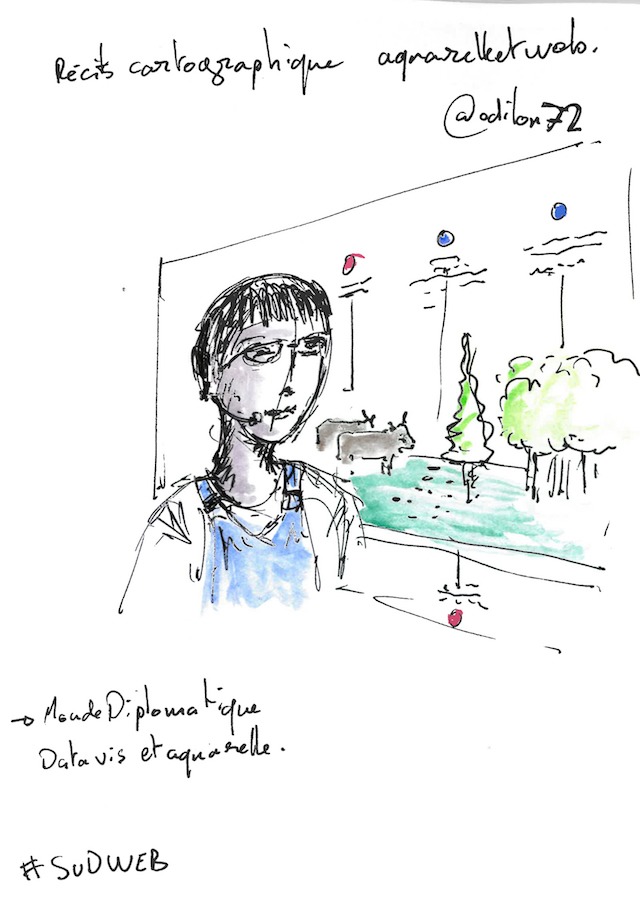 Récits cartographique aquarelle et web.
@odilon72
→ Monde Diplomatique
Datavis et aquarelle.
#SUDWEB